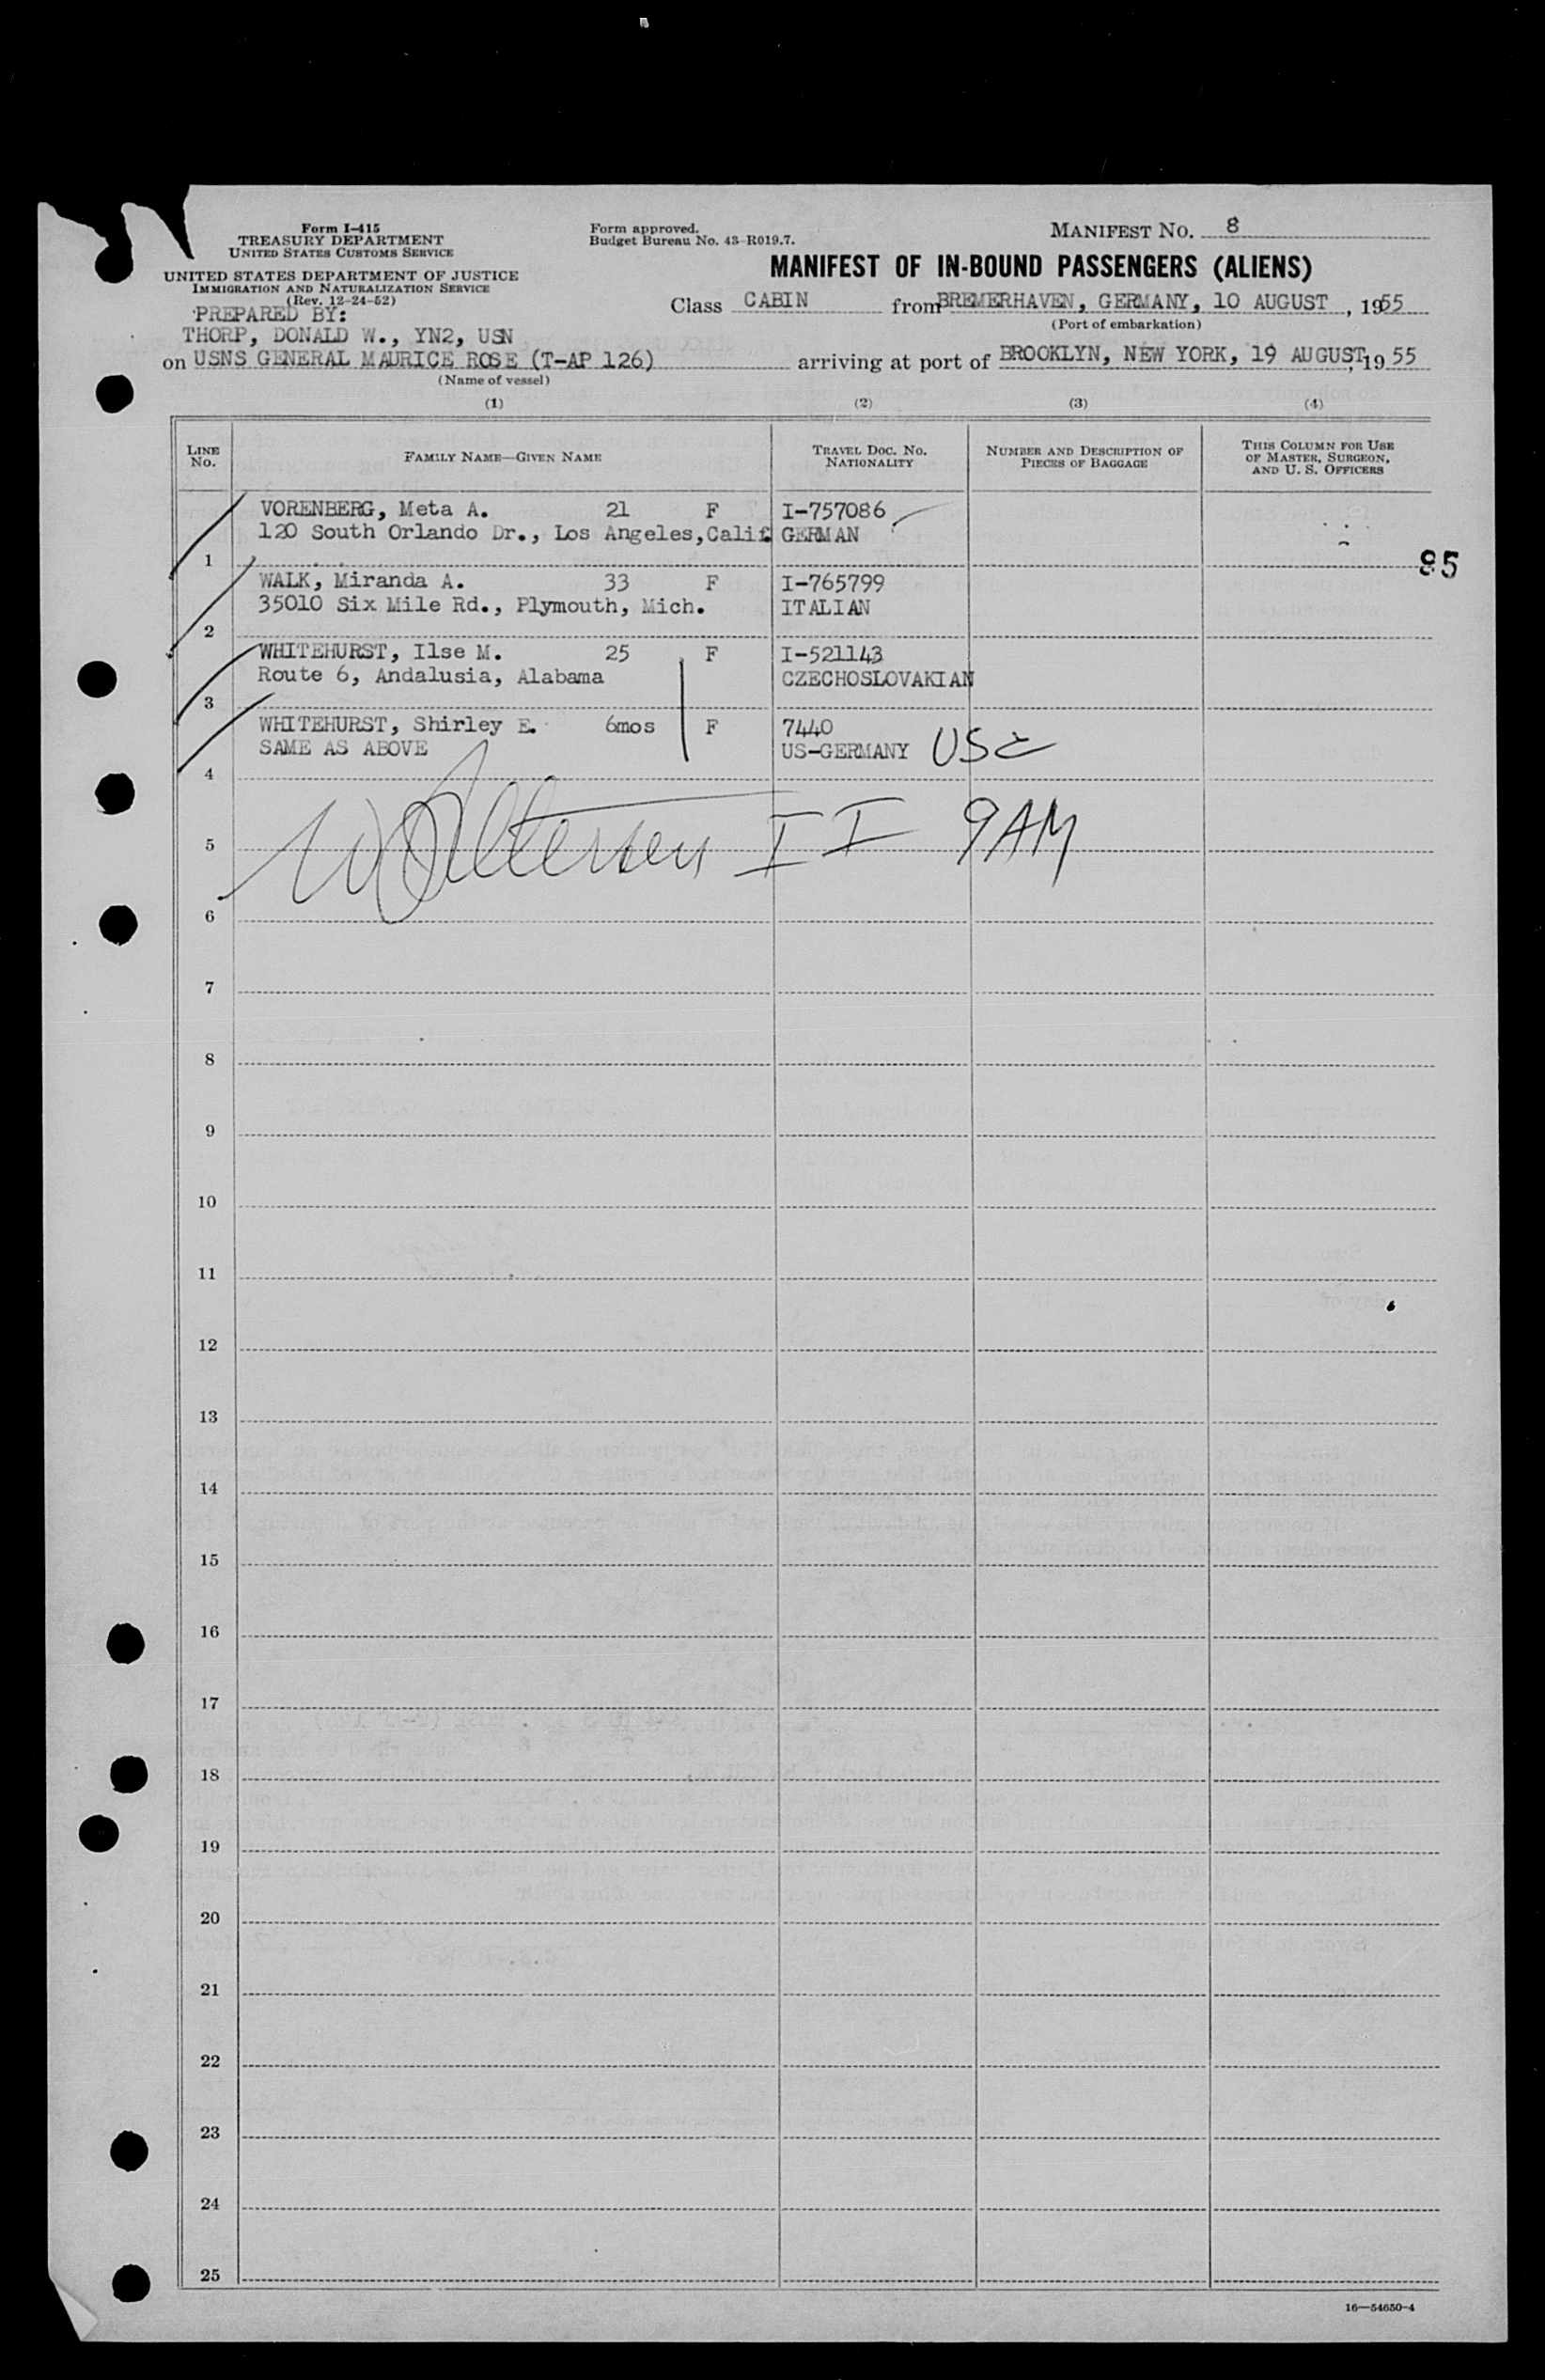 Form I-415
TREASURY DEPARTMENT
UNITED STATES CUSTOMS SERVICE
UNITED STATES DEPARTMENT OF JUSTICE
IMMIGRATION AND NATURALIZATION SERVICE
(Rev. 12-24-52)
Form approved.
Budget Bureau No. 43-R019.7.
MANIFEST No. 8
MANIFEST OF IN-BOUND PASSENGERS (ALIENS)
Class CABIN from BREMERHAVEN, GERMANY, 10 AUGUST, 1955
(Port of embarkation)
PREPARED BY:
THORP, DONALD W., YN2, USN
on USNS GENERAL MAURICE ROSE (T-AP 126) arriving at port of BROOKLYN, NEW YORK, 19 AUGUST, 1955
(Name of vessel)
(1) (2) (3) (4)
LINE No. FAMILY NAME—GIVEN NAME TRAVEL DOC. NO. NATIONALITY NUMBER AND DESCRIPTION OF PIECES OF BAGGAGE THIS COLUMN FOR USE OF MASTER, SURGEON, AND U. S. OFFICERS
VORENBERG, Meta A. 21 F I-757086
120 South Orlando Dr., Los Angeles, Calif. GERMAN
1
95
WALK, Miranda A. 33 F I-765799
35010 Six Mile Rd., Plymouth, Mich. ITALIAN
2
WHITEHURST, Ilse M. 25 F I-521143
Route 6, Andalusia, Alabama CZECHOSLOVAKIAN
3
WHITEHURST, Shirley E. 6mos F 7440
SAME AS ABOVE US-GERMANY USC
4
II 9AM
5
6
7
8
9
10
11
12
13
14
15
16
17
18
19
20
21
22
23
24
25
16—54650-4